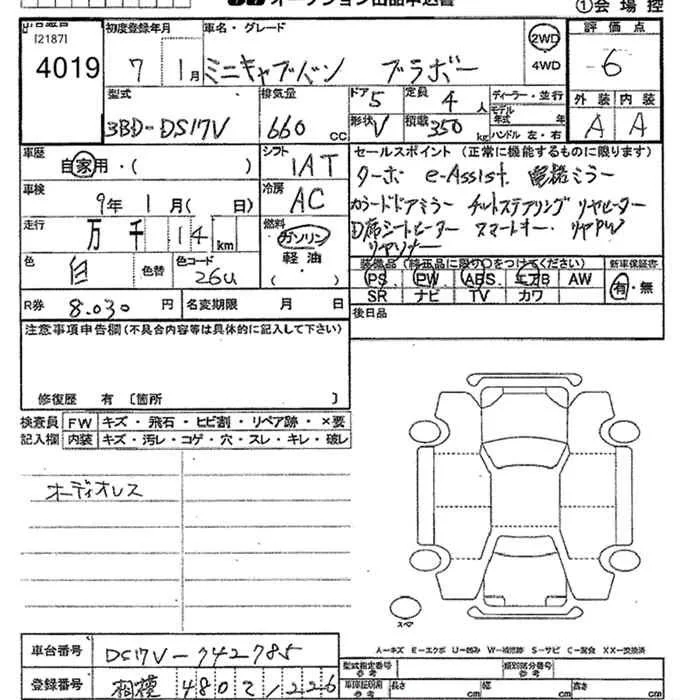 オークション出品申込書
①会場控
[2187]
4019
初度登録年月
7 1月
車名・グレード
ミニキャブバン ブラボー
2WD
4WD
評価点
6
型式
3BD-DS17V
排気量
660 CC
ドア 5
定員 4人
ディーラー・並行
モデル年式 年
形状 V
積載 350 kg
ハンドル 左・右
外装 内装
A A
車歴
自家用・( )
シフト
IAT
セールスポイント (正常に機能するものに限ります)
ターボ e-Assist. 電格ミラー
カラードドアミラー チルトステアリング リヤヒーター
D席シートヒーター スマートキー・ リヤPW
リヤソナー
車検
9年 1月( 日)
冷房
AC
走行
万 千 14 km
燃料
ガソリン
軽油
( )
色
白
色替
色コード
26U
装備品 (純正品に限り○をつけてください)
PS PW ABS エアB AW
SR ナビ TV カワ
新車保証書
有・無
R券 8.030円
名変期限 月 日
後日品
注意事項申告欄(不具合内容等は具体的に記入して下さい)
修復歴 有 〔箇所 〕
検査員記入欄
FW キズ・飛石・ヒビ割・リペア跡・×要
内装 キズ・汚レ・コゲ・穴・スレ・キレ・破レ
オーディオレス
スペア
A−キズ E−エクボ U−凹み W−補修跡 S−サビ C−腐食 XX−交換済
車台番号 DS17V-742785
登録番号 相模 480 2 1226
型式指定番号
類別区分番号
車庫証明用参考
長さ 幅 高さ